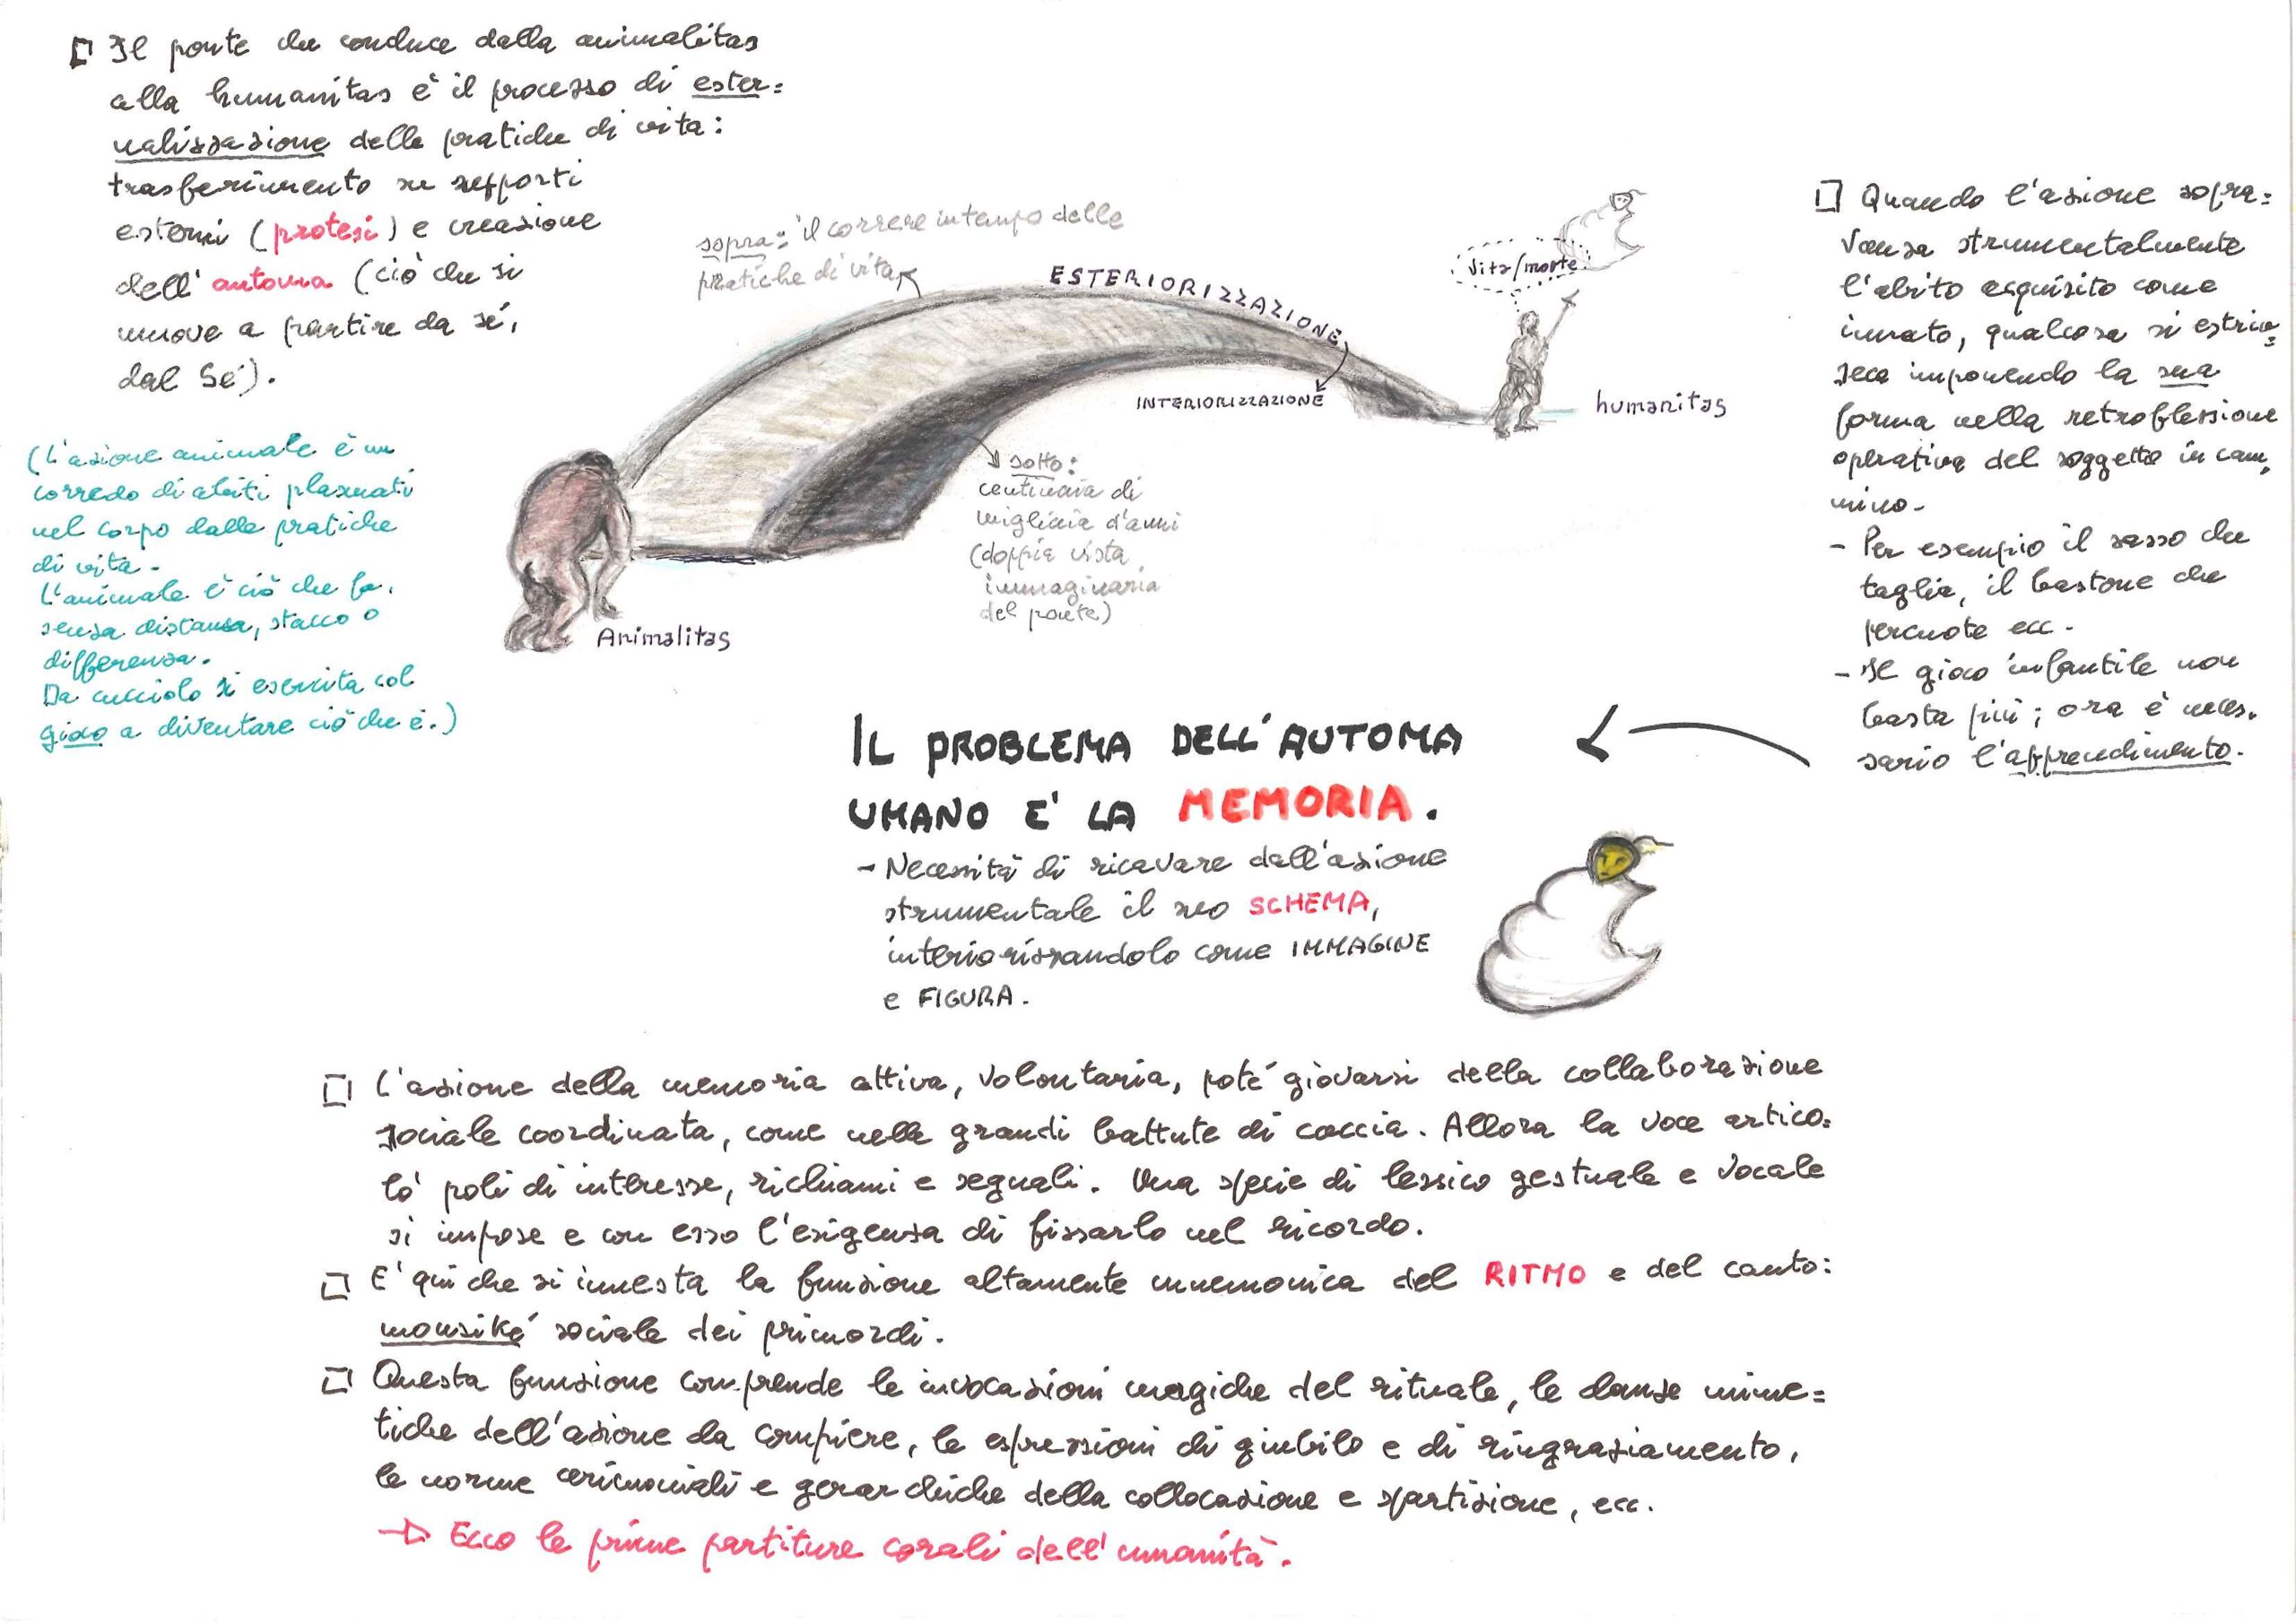 Il ponte che conduce dalla animalitas
alla humanitas è il processo di ester=
nalizzazione delle pratiche di vita:
trasferimento su supporti
esterni (protesi) e creazione
dell'automa (ciò che si
muove a partire da sé,
dal Sé).
(L'azione animale è un
corredo di abiti plasmati
nel corpo dalle pratiche
di vita.
L'animale è ciò che fa,
senza distanza, stacco o
differenza.
Da cucciolo si esercita col
gioco a diventare ciò che è.)
sopra: il correre in tempo delle
pratiche di vita
ESTERIORIZZAZIONE
INTERIORIZZAZIONE
vita/morte
humanitas
sotto:
centinaia di
migliaia d'anni
(doppia vista
immaginaria
del ponte)
Animalitas
Quando l'azione sopra=
vanza strumentalmente
l'abito acquisito come
innato, qualcosa si estrin=
seca imponendo la sua
forma nella retroflessione
operativa del soggetto in cam,
mino.
- Per esempio il sasso che
taglia, il bastone che
percuote ecc.
- Il gioco infantile non
basta più; ora è neces.
sario l'apprendimento.
IL PROBLEMA DELL'AUTOMA
UMANO E' LA MEMORIA.
- Necessità di ricavare dall'azione
strumentale il suo SCHEMA,
interiorizzandolo come IMMAGINE
e FIGURA.
L'azione della memoria attiva, volontaria, poté giovarsi della collaborazione
sociale coordinata, come nelle grandi battute di caccia. Allora la voce artico=
lò poli di interesse, richiami e segnali. Una specie di lessico gestuale e vocale
si impose e con esso l'esigenza di fissarlo nel ricordo.
E' qui che si innesta la funzione altamente mnemonica del RITMO e del canto:
mousiké sociale dei primordi.
Questa funzione comprende le invocazioni magiche del rituale, le danze mime=
tiche dell'azione da compiere, le espressioni di giubilo e di ringraziamento,
le norme cerimoniali e gerarchiche della collocazione e spartizione, ecc.
→ Ecco le prime partiture corali dell'umanità.